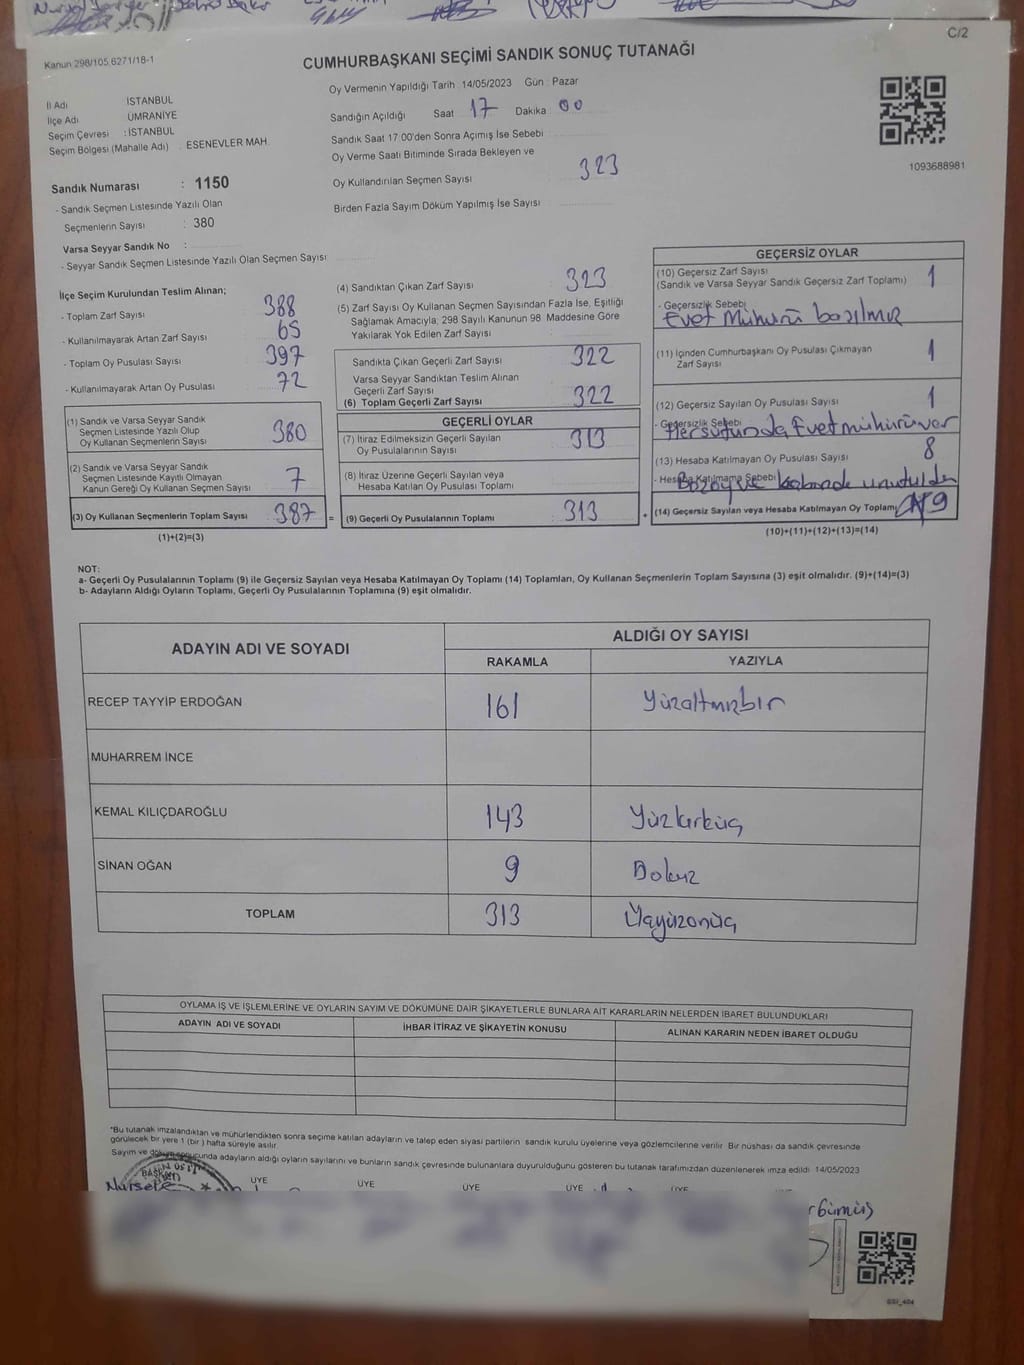 C/2
Kanun 298/105.6271/18-1
CUMHURBAŞKANI SEÇİMİ SANDIK SONUÇ TUTANAĞI
Oy Vermenin Yapıldığı Tarih : 14/05/2023 Gün : Pazar
İl Adı İSTANBUL
İlçe Adı ÜMRANİYE
Seçim Çevresi : İSTANBUL
Seçim Bölgesi (Mahalle Adı) : ESENEVLER MAH.
Sandığın Açıldığı Saat 17 Dakika 00
Sandık Saat 17.00'den Sonra Açımış İse Sebebi
Oy Verme Saati Bitiminde Sırada Bekleyen ve
Oy Kullandırılan Seçmen Sayısı 323
Birden Fazla Sayım Döküm Yapılmış İse Sayısı
1093688981
Sandık Numarası : 1150
- Sandık Seçmen Listesinde Yazılı Olan
Seçmenlerin Sayısı : 380
Varsa Seyyar Sandık No :
- Seyyar Sandık Seçmen Listesinde Yazılı Olan Seçmen Sayısı :
İlçe Seçim Kurulundan Teslim Alınan;
- Toplam Zarf Sayısı 388
- Kullanılmayarak Artan Zarf Sayısı 65
- Toplam Oy Pusulası Sayısı 397
- Kullanılmayarak Artan Oy Pusulası 72
(1) Sandık ve Varsa Seyyar Sandık
Seçmen Listesinde Yazılı Olup
Oy Kullanan Seçmenlerin Sayısı 380
(2) Sandık ve Varsa Seyyar Sandık
Seçmen Listesinde Kayıtlı Olmayan
Kanun Gereği Oy Kullanan Seçmen Sayısı 7
(3) Oy Kullanan Seçmenlerin Toplam Sayısı 387 =
(1)+(2)=(3)
(4) Sandıktan Çıkan Zarf Sayısı 323
(5) Zarf Sayısı Oy Kullanan Seçmen Sayısından Fazla İse, Eşitliği
Sağlamak Amacıyla, 298 Sayılı Kanunun 98. Maddesine Göre
Yakılarak Yok Edilen Zarf Sayısı
Sandıkta Çıkan Geçerli Zarf Sayısı 322
Varsa Seyyar Sandıktan Teslim Alınan
Geçerli Zarf Sayısı
(6) Toplam Geçerli Zarf Sayısı 322
GEÇERLİ OYLAR
(7) İtiraz Edilmeksizin Geçerli Sayılan
Oy Pusulalarının Sayısı 313
(8) İtiraz Üzerine Geçerli Sayılan veya
Hesaba Katılan Oy Pusulası Toplamı
(9) Geçerli Oy Pusulalarının Toplamı 313 +
GEÇERSİZ OYLAR
(10) Geçersiz Zarf Sayısı
(Sandık ve Varsa Seyyar Sandık Geçersiz Zarf Toplamı) 1
- Geçersizlik Sebebi
Evet Mühürü basılmış
(11) İçinden Cumhurbaşkanı Oy Pusulası Çıkmayan
Zarf Sayısı 1
(12) Geçersiz Sayılan Oy Pusulası Sayısı 1
- Geçersizlik Sebebi
Her sütunda Evet mühürü var
(13) Hesaba Katılmayan Oy Pusulası Sayısı 8
- Hesaba Katılmama Sebebi
(14) Geçersiz Sayılan veya Hesaba Katılmayan Oy Toplamı 9
(10)+(11)+(12)+(13)=(14)
NOT:
a- Geçerli Oy Pusulalarının Toplamı (9) ile Geçersiz Sayılan veya Hesaba Katılmayan Oy Toplamı (14) Toplamları, Oy Kullanan Seçmenlerin Toplam Sayısına (3) eşit olmalıdır. (9)+(14)=(3)
b- Adayların Aldığı Oyların Toplamı, Geçerli Oy Pusulalarının Toplamına (9) eşit olmalıdır.
ADAYIN ADI VE SOYADI ALDIĞI OY SAYISI
RAKAMLA YAZIYLA
RECEP TAYYİP ERDOĞAN 161 Yüzaltmışbir
MUHARREM İNCE
KEMAL KILIÇDAROĞLU 143 Yüzkırküç
SİNAN OĞAN 9 Dokuz
TOPLAM 313 Üçyüzonüç
OYLAMA İŞ VE İŞLEMLERİNE VE OYLARIN SAYIM VE DÖKÜMÜNE DAİR ŞİKAYETLERLE BUNLARA AİT KARARLARIN NELERDEN İBARET BULUNDUKLARI
ADAYIN ADI VE SOYADI İHBAR İTİRAZ VE ŞİKAYETİN KONUSU ALINAN KARARIN NEDEN İBARET OLDUĞU
*Bu tutanak imzalandıktan ve mühürlendikten sonra seçime katılan adayların ve talep eden siyasi partilerin sandık kurulu üyelerine veya gözlemcilerine verilir. Bir nüshası da sandık çevresinde
görülecek bir yere 1 (bir) hafta süreyle asılır.
Sayım ve döküm sonucunda adayların aldığı oyların sayılarını ve bunların sandık çevresinde bulunanlara duyurulduğunu gösteren bu tutanak tarafımızdan düzenlenerek imza edildi. 14/05/2023
BAŞKAN ÜYE ÜYE ÜYE ÜYE ÜYE